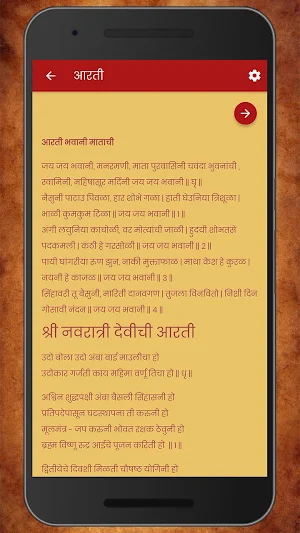 आरती
आरती भवानी माताची
जय जय भवानी, मनरमणी, माता पुरवासिनी चवदा भुवनांची ,
स्वामिनी, महिषासुर मर्दिनी जय जय भवानी || धृ ||
नेसुनी पाटाउ पिवळा, हार शोभे गळा | हाती घेउनिया त्रिशूळा |
भाळी कुमकुम टिळा || जय जय भवानी || 1 ||
अंगी लवुनिया काचोळी, वर मोत्यांची जाळी | हुदयी शोभतसे
पदकमली | कंठी हे गरसोळी || जय जय भवानी || 2 ||
पायी घागरीया रुण झुन, नाकी मुक्ताफाळ | माथा केश हे कुरळ |
नयनी हे काजळ || जय जय भवानी || 3 ||
सिंहावरी तू बैसुनी, मारिती दानवगण | तुजला विनवितो | निशी दिन
गोसावी नंदन || जय जय भवानी || 4 ||
श्री नवरात्री देवीची आरती
उदो बोला उदो अंबा बाई माउलीचा हो
उदोकार गर्जती काय महिमा वर्णू तिचा हो || धृ ||
अश्विन शुद्धपक्षी अंबा बैसली सिंहासनी हो
प्रतिपदेपासून घटस्थापना ती करुनी हो
मूलमंत्र - जप करुनी भोवत रक्षक ठेवुनी हो
ब्रह्म विष्णु रुद्र आईचे पूजन करिती हो || 1 ||
द्वितीयेचे दिवशी मिळती चौषष्ठ योगिनी हो